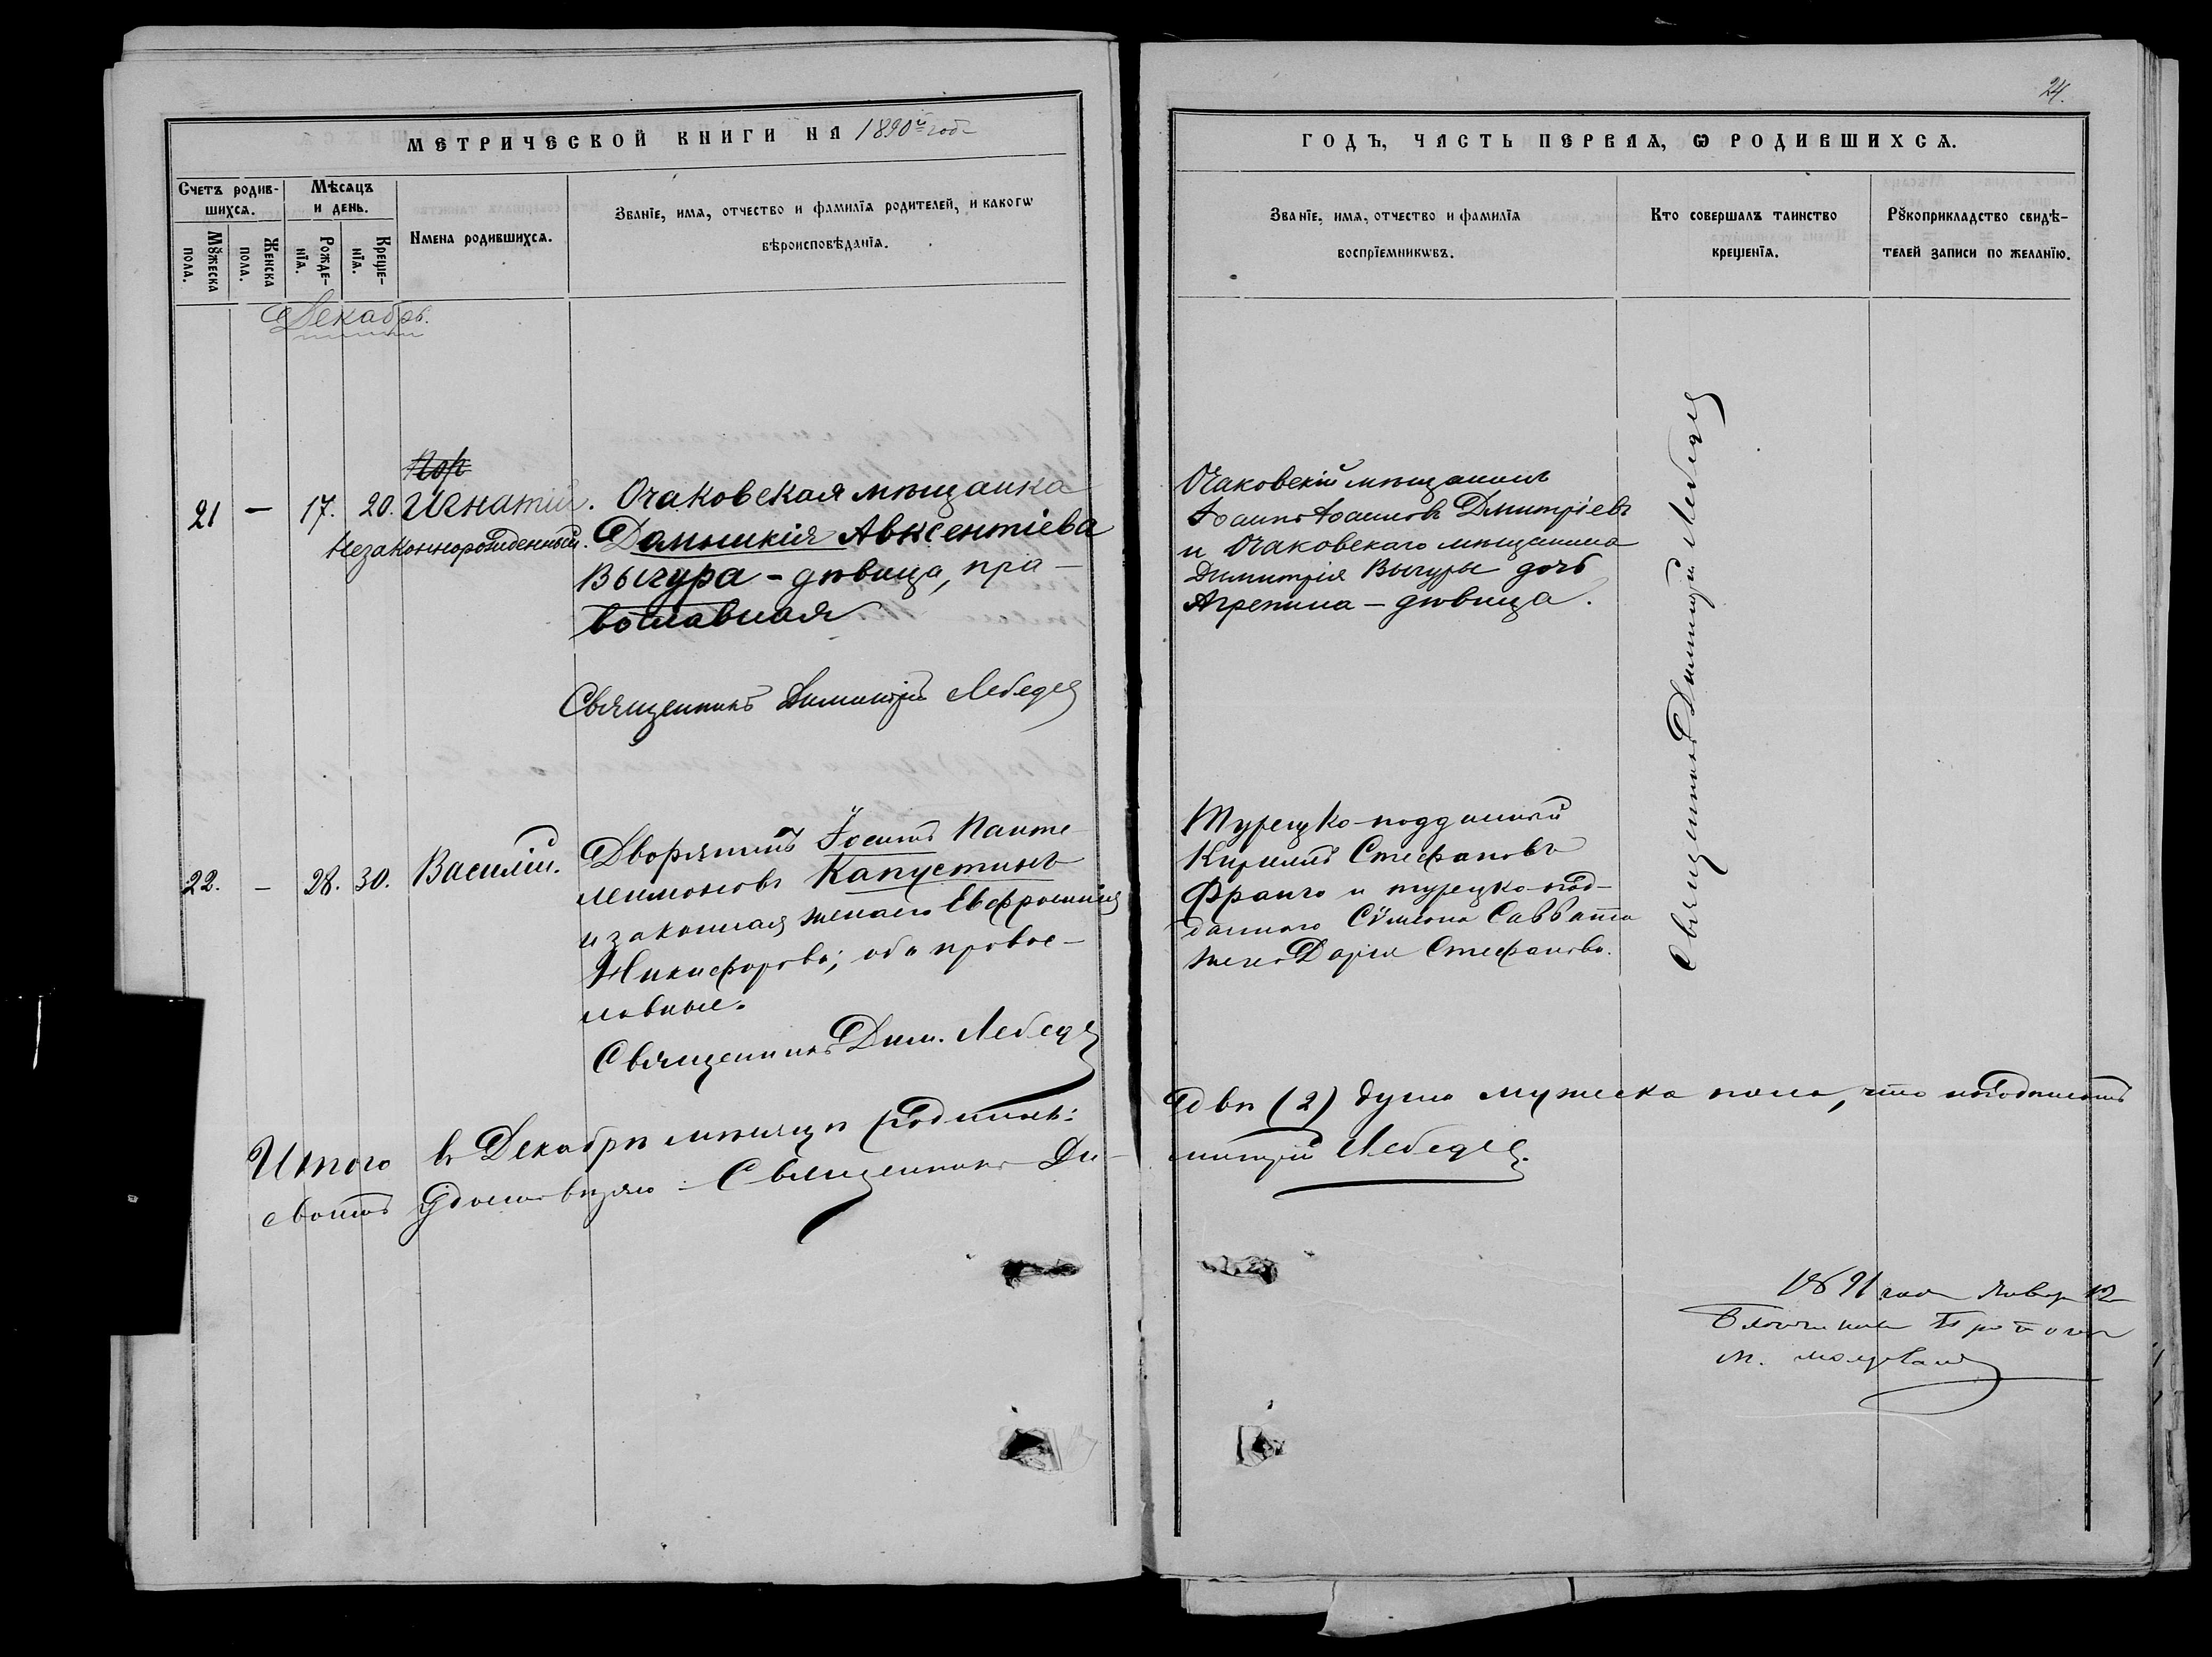 24.
МЕТРИЧЕСКОЙ КНИГИ НА 1890й годъ
ГОДЪ, ЧАСТЬ ПЕРВАЯ, Ѡ РОДИВШИХСѦ.
Счетъ родив-
шихсѧ.
Мꙋжеска
пола.
Женска
пола.
Мѣсѧцъ
и день.
Рожде-
нїѧ.
Креще-
нїѧ.
Имена родившихсѧ.
Званїе, имѧ, отчество и фамилїѧ родителей, и какогѡ
вѣроисповѣданїѧ.
Званїе, имѧ, отчество и фамилїѧ
воспрїемникѡвъ.
Кто совершалъ таинство
крещенїѧ.
Рꙋкоприкладство свидѣ-
телей записи по желанїю.
Декабрь.
21 — 17. 20. Игнатій.
Незаконнорожденный.
Очаковская мѣщанка
Домникія Авксентіева
Вычура - дѣвица, пра-
вославная
Священникъ Димитрій Лебедев
Очаковскій мѣщанинъ
Іоаннъ Іоанновъ Дмитріевъ
и Очаковскаго мѣщанина
Димитрія Вычуры дочь
Агрепина - дѣвица.
Священникъ Димитрій Лебедев
22. — 28. 30. Василій.
Дворянинъ Іосифъ Панте
леимоновъ Капустинъ
и законная жена его Евфросинія
Никифорова; оба правос-
лавные.
Священникъ Дим. Лебедев
Турецко-подданный
Кириллъ Стефановъ
Франго и турецко-под-
даннаго Сѵмеона Савва
жена Дарія Стефанова.
Итого въ Декабрѣ мѣсяцѣ родилось: двѣ (2) души мужеска пола, что
удостовѣряю: Священникъ Димитрій Лебедев.
1891 года Январ 12
Благочинный Протоіер
М.